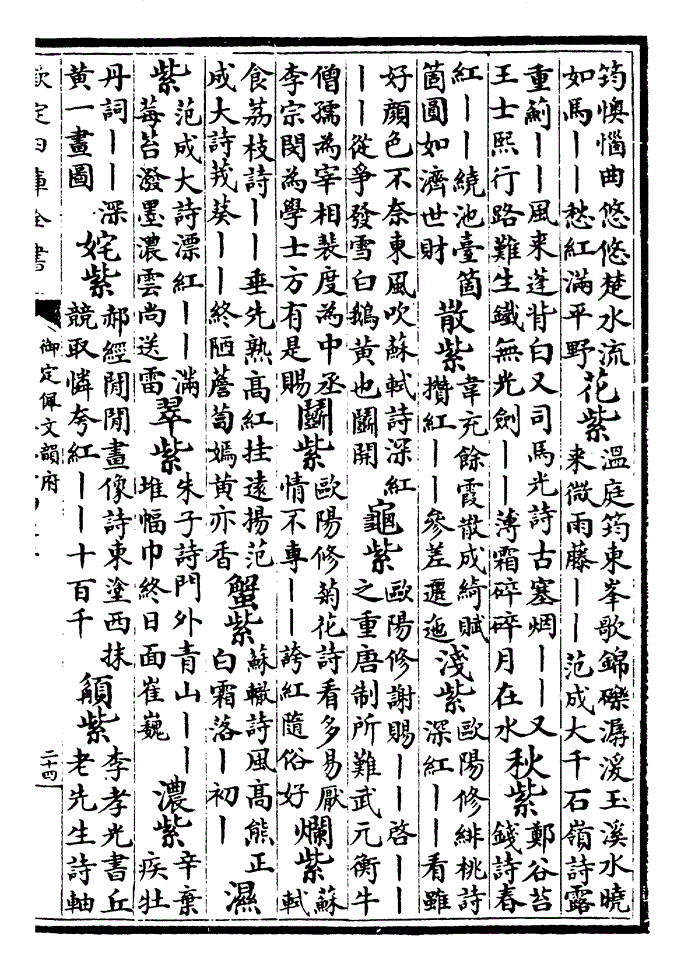 筠懊惱曲悠悠楚水流
如馬丨丨愁紅滿平野
花紫
溫庭筠東峯歌錦礫潺湲玉溪水曉
来微雨藤丨丨范成大千石嶺詩露
重薊丨丨風来蓬背白又司馬光詩古塞烟丨丨又
王士熙行路難生鐵無光劍丨丨薄霜碎碎月在水
秋紫
鄭谷苔
錢詩春
紅丨丨繞池臺箇
箇圓如濟世財
散紫
韋充餘霞散成綺賦
攢紅丨丨參差邐迤
淺紫
歐陽修緋桃詩
深紅丨丨看雖
好顏色不奈東風吹蘇軾詩深紅
丨丨從爭發雪白鵝黃也鬭開
龜紫
歐陽修謝賜丨丨啓丨丨
之重唐制所難武元衡牛
僧孺為宰相裴度為中丞
李宗閔為學士方有是賜
鬭紫
歐陽修菊花詩看多易厭
情不專丨丨誇紅隨俗好
爛紫
蘇
軾
食荔枝詩丨丨垂先熟高紅挂遠揚范
成大詩茙葵丨丨終陋薝蔔嫣黃亦香
蟹紫
蘇轍詩風高熊正
白霜落丨初丨
濕
紫
范成大詩漂紅丨丨滿
莓苔潑墨濃雲尚送雷
翠紫
朱子詩門外青山丨丨
堆幅巾終日面崔巍
濃紫
辛棄
疾牡
丹詞丨丨深
黃一畫圖
姹紫
郝經閒閒畫像詩東塗西抹
競取憐夸紅丨丨十百千
紫
李孝光書丘
老先生詩軸
欽定四庫全書
御定佩文韻府
二十四